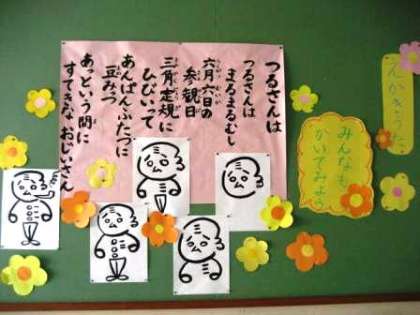 つるさんは
つるさんは
まるまるむし
六月六日の
参観日
三角定規に
ひびいって
あんぱんふたつに
豆みつ
あっという間に
すてきな おじいさん
みんなも
かいてみよう
えかきうた